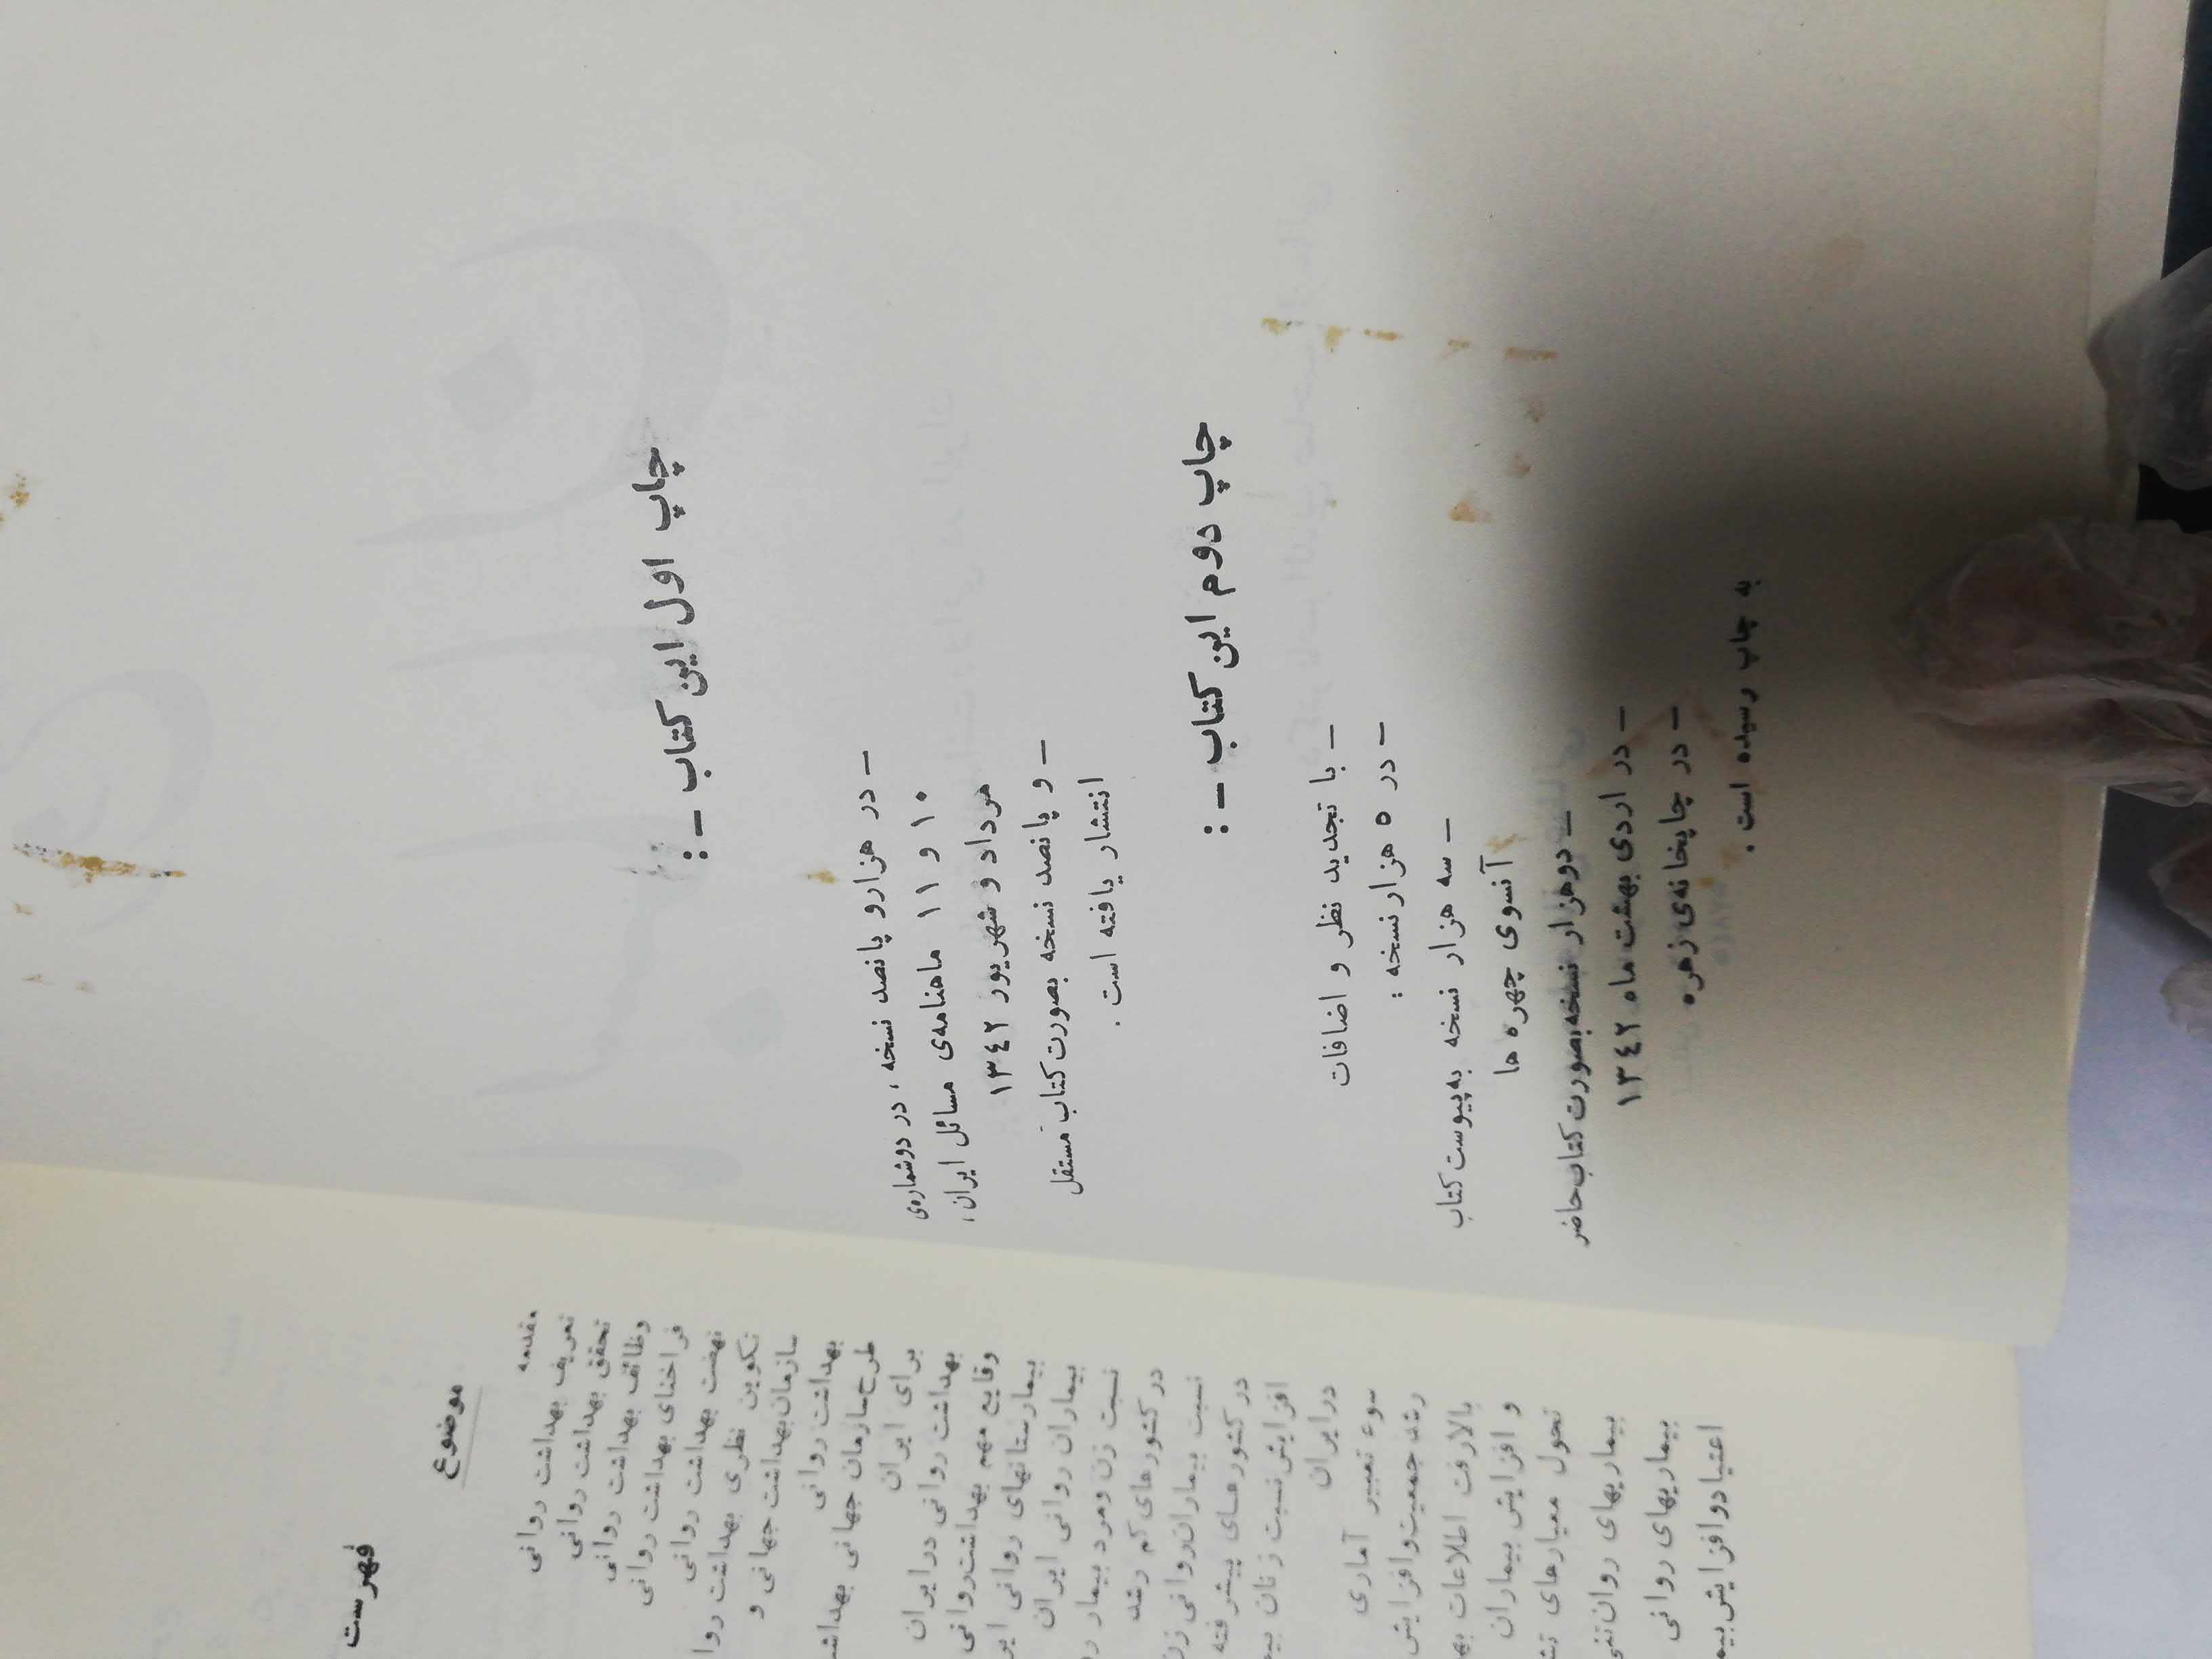 چاپ اول این کتاب -:
- در هزار و پانصد نسخه ، در دو شماره‌ی
۱۰ و ۱۱ ماهنامه‌ی مسائل ایران ،
مرداد و شهریور ۱۳۴۲
- و پانصد نسخه بصورت کتاب مستقل
انتشار یافته است .
چاپ دوم این کتاب -:
- با تجدید نظر و اضافات
- در ۵ هزار نسخه :
- سه هزار نسخه به پیوست کتاب
آنسوی چهره ها
- دو هزار نسخه بصورت کتاب حاضر
- در اردی بهشت ماه ۱۳۴۲
- در چاپخانه‌ی زهره
به چاپ رسیده است .
فهرست
موضوع
مقدمه
تعریف بهداشت روانی
تحقق بهداشت روانی
وظائف بهداشت روانی
فراخنای بهداشت روانی
نهضت بهداشت روانی
تکوین نظری بهداشت روا
سازمان بهداشت جهانی و
بهداشت روانی
طرح سازمان جهانی بهداشت
برای ایران
بهداشت روانی در ایران
وقایع مهم بهداشت روانی
بیمارستانهای روانی ایر
بیماران روانی ایران
نسبت زن و مرد بیمار رو
در کشورهای کم رشد
نسبت بیماران روانی زن
در کشورهای پیشرفته
افزایش نسبت زنان بیم
در ایران
سوء تعبیر آماری
رشد جمعیت و افزایش
بالا رفت اطلاعات به
و افزایش بیماران
تحول معیارهای تش
بیماریهای روان تنی
بیماریهای روانی
اعتیاد و افزایش بیم